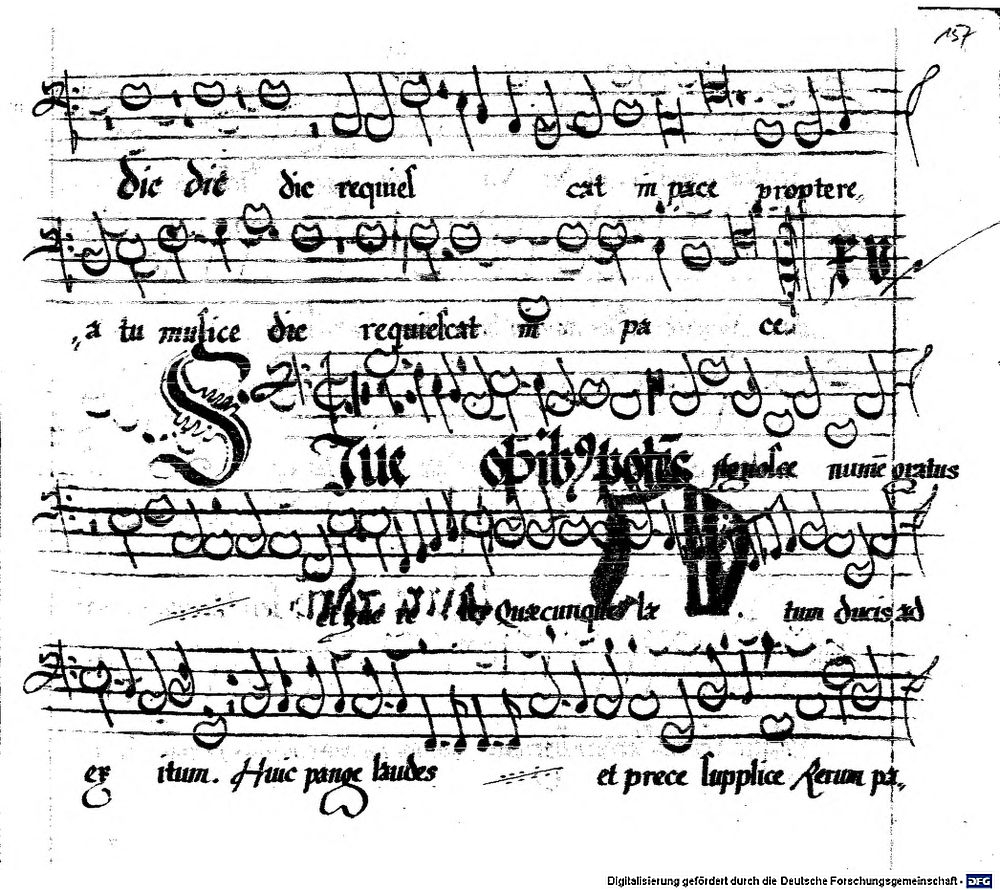 157
die die die requiescat in pace proptere,,
,,a tu musice die requiescat in pace.
XV
Siue opibus potens
et que te Quæcunque læ tum ducis ad
ex itum. Huic pange laudes et prece supplice Rerum pa,,
Digitalisierung gefördert durch die Deutsche Forschungsgemeinschaft - DFG